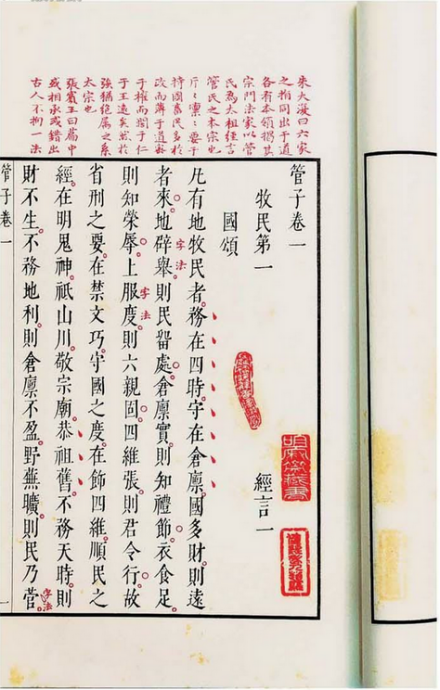 六家
之指同出于道
各有本領揭其
宗門法家以管
氏為太祖經言
管氏之本宗也
要于
持國畜民多於
政而薄于道密
于權而
于王道矣
太宗也
張賓王曰篇中
或相承或錯出
古人不拘一法
管子卷一
牧民第一　經言一
國頌
凡有地牧民者務在四時守在倉廩國多財則遠
字法
者來地辟舉則民留處倉廩實則知禮節衣食足
字法
則知榮辱上服度則六親固四維張則君令行故
省刑之要在禁文巧守國之度在飾四維順民之
經在明鬼神祇山川敬宗廟恭祖舊不務天時則
財不生不務地利則倉廩不盈野蕪曠則民乃菅
字法
管子卷一　一